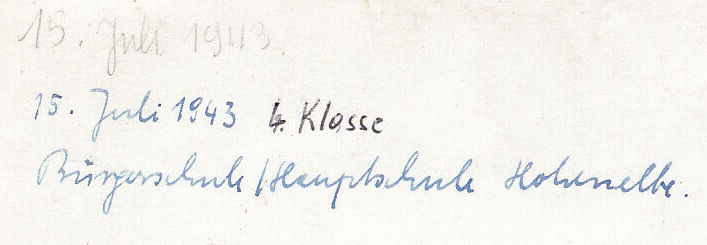 15. Juli 1943.
15. Juli 1943 4. Klasse
Bürgerschule/Hauptschule Hohenelbe.